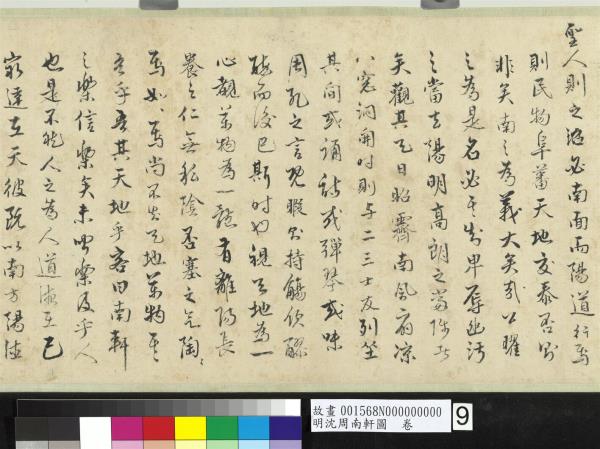 聖人則之治必南面而陽道行焉
則民物阜蕃天地交泰否則
非矣南之為義大矣哉以曜
之為是名必其出卑辱幽污
之當去陽明高朗之當際此
矣觀其天日昭霽南風扇涼
八窓洞開時則与二三士友列坐
其間或誦詩或彈琴或味
周孔之言既暇則持觴飲醇
酡而後已斯時也視天地為一
心觀萬物為一體有離陽長
養之仁無私陰忍塞之乞陶陶
焉如如焉尚不知天地萬物之
吾乎吾其天地乎客曰南軒
之樂信樂矣未聞樂及乎人
也是不然人之為人道備在己
窮達在天彼既以南方陽德
故畫 001568N000000000
明沈周南軒圖 卷
9